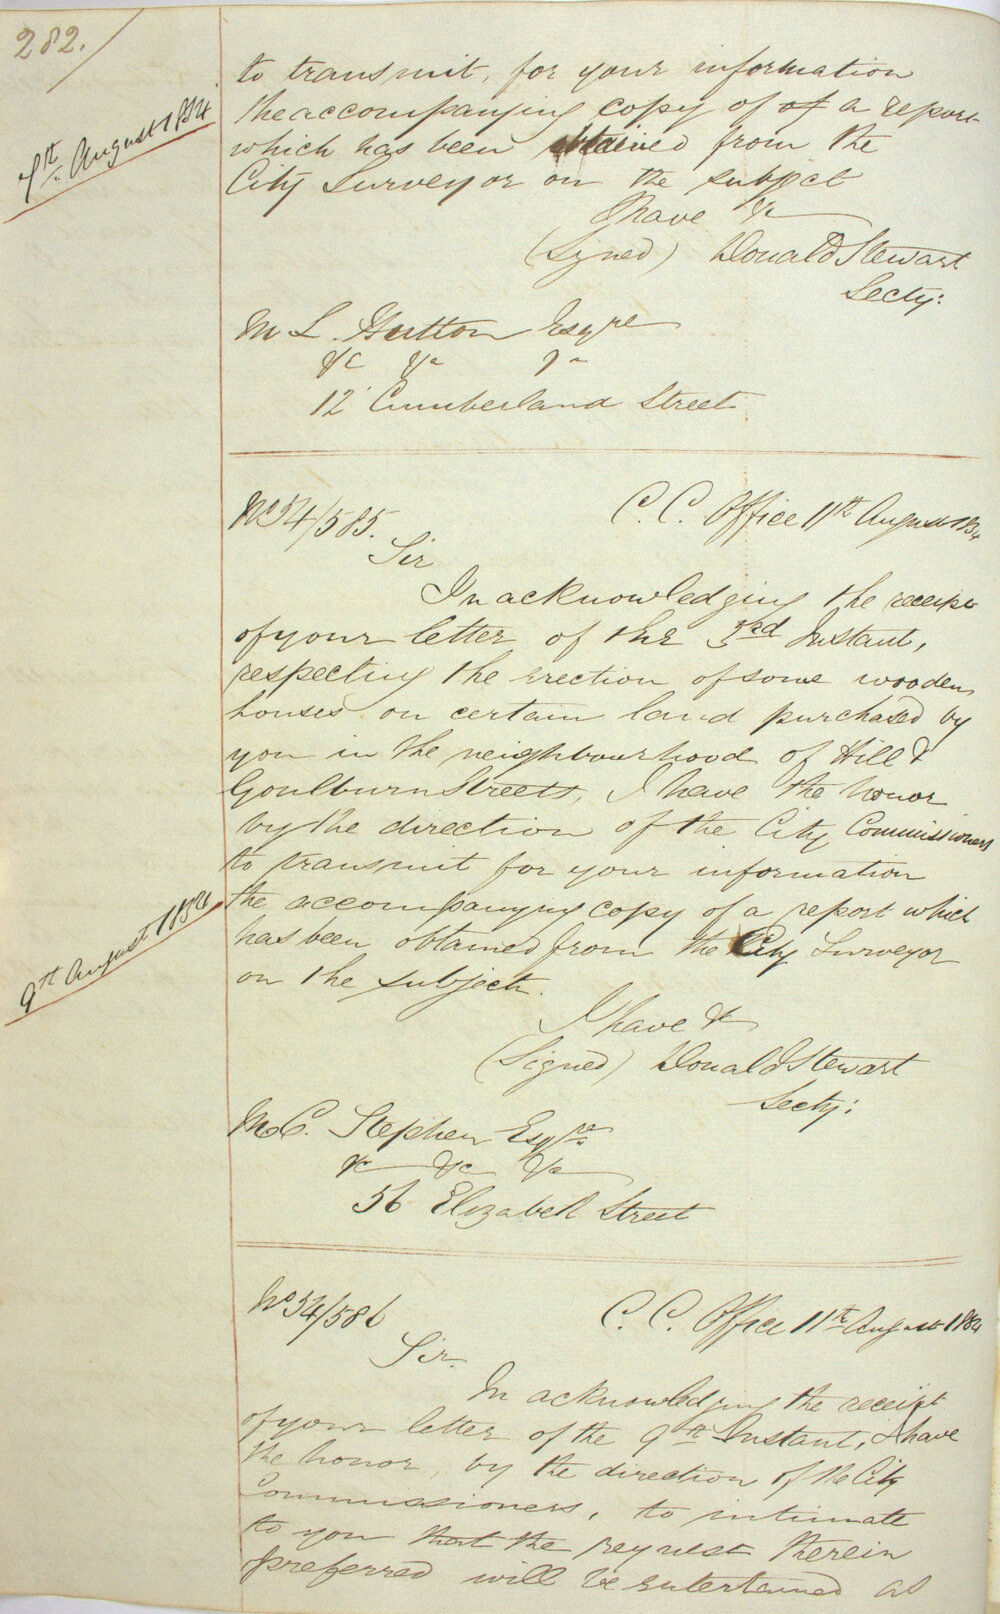 282.
to transmit, for your information
the accompanying copy of of a report
which has been obtained from the
City Surveyor on the subject
I have &c
(Signed) Donald Stewart
Secty:
7th August 1854
M L. Hutton Esqre
&c &c &c
12 Cumberland Street
No 54/585.
C. C. Office 11th August 1854
Sir
In acknowledging the receipt
of your letter of the 3rd Instant,
respecting the erection of some wooden
houses on certain land purchased by
you in the neighbourhood of Hill &
Goulburn Streets, I have the honor
by the direction of the City Commissioners
to transmit for your information
the accompanying copy of a report which
has been obtained from the City Surveyor
on the subject.
9th August 1854
I have &c
(Signed) Donald Stewart
Secty:
M. C. Stephen Esqre
&c &c &c
56 Elizabeth Street
No 54/586
C. C. Office 11th August 1854
Sir.
In acknowledging the receipt
of your letter of the 9th Instant, I have
the honor, by the direction of the City
Commissioners, to intimate
to you that the request therein
preferred will be entertained as